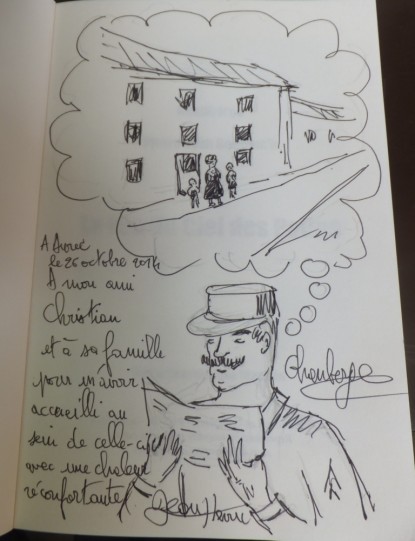 A
le 26 octobre 2014
A mon ami
Christian
et à sa famille
pour m'avoir
accueilli au
sein de celle-ci
avec une chaleur
réconfortante